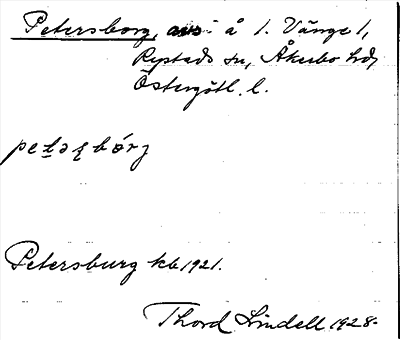 Petersborg, i å 1. Vänge 1,
Rystads sn, Åkerbo hd,
Östergötl. l.
petəʂbórj
Petersburg kb 1921.
Thord Lindell 1928.